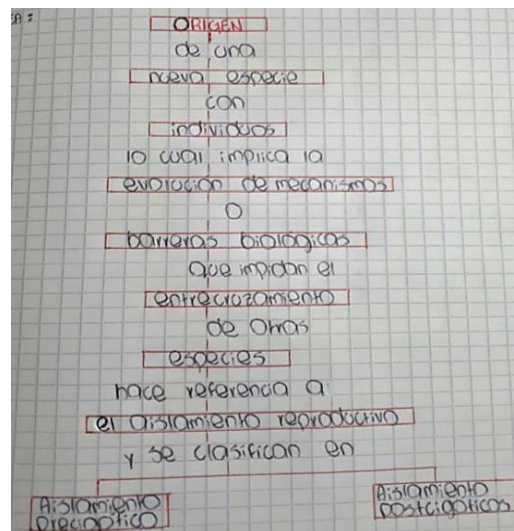 A:
ORIGEN
de una
nueva especie
con
individuos
lo cual implica la
evolución de mecanismos
O
barreras biológicas
que impidan el
entrecruzamiento
de Otras
especies
hace referencia a
el aislamiento reproductivo
y se clasifican en
Aislamiento
precigotico
Aislamiento
postcigoticos